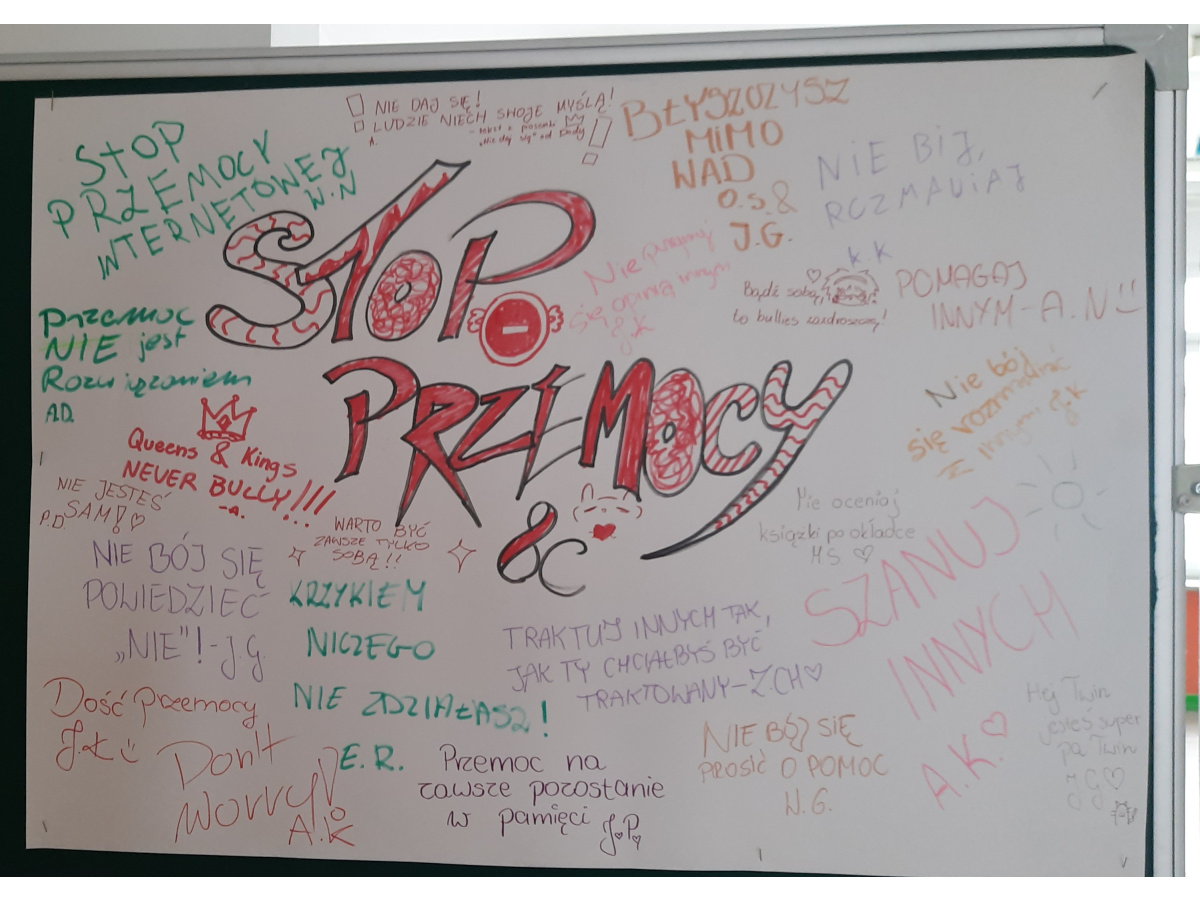 STOP
PRZEMOCY
INTERNETOWEJ
W.N
NIE DAJ SIĘ!
LUDZIE NIECH SWOJE MYŚLĄ!
- tekst z piosenki
"Nie daj się" od Dody
A.
BŁYSZCZYSZ
MIMO
WAD
O.S &
J.G.
NIE BIJ,
ROZMAWIAJ
K.K
STOP
PRZEMOCY
&C
Nie przejmuj
się opinią innym
Bądź sobą,
to bullies zazdroszczą!
POMAGAJ
INNYM-A.N
Przemoc
NIE jest
Rozwiązaniem
A.D.
Nie bój
się rozmawiać
z Innymi
Queens & Kings
NEVER BULLY!!!
-A.
NIE JESTEŚ
SAM!
P.D.
WARTO BYĆ
ZAWSZE TYLKO
SOBĄ!!
Nie oceniaj
książki po okładce
M.S
NIE BÓJ SIĘ
POWIEDZIEĆ
„NIE”!-J.G.
KRZYKIEM
NICZEGO
NIE ZDZIAŁASZ!
E.R.
TRAKTUJ INNYCH TAK,
JAK TY CHCIAŁBYŚ BYĆ
TRAKTOWANY-Z.CH
SZANUJ
INNYCH
A.K.
Dość przemocy
J.Ł
Don't
worry!
A.K
Przemoc na
zawsze pozostanie
w pamięci J.P.
NIE BÓJ SIĘ
PROSIĆ O POMOC
W.G.
Hej Twin
jesteś super
pa Twin
J G